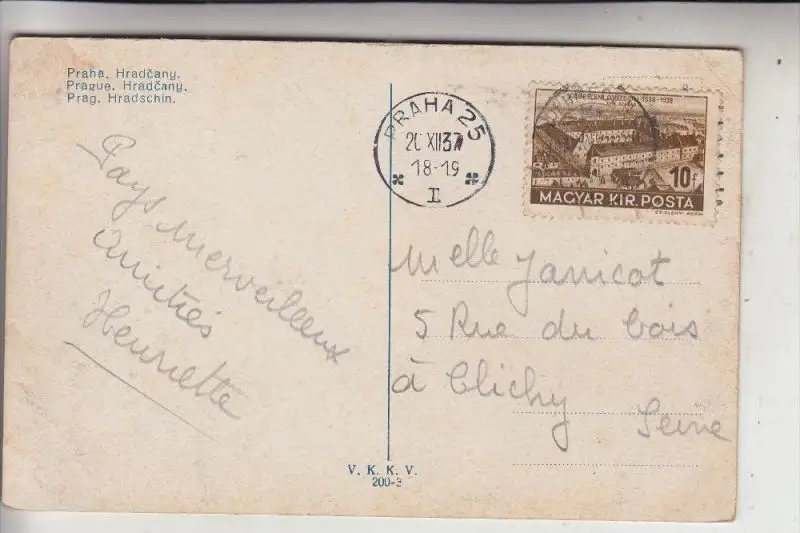 Praha, Hradčany.
Prague, Hradčany.
Prag. Hradschin.
PRAHA 25
20 XII 37
18-19
I
1538-1938
10f
MAGYAR KIR. POSTA
Pays merveilleux
Amitiés
Henriette
Melle Janicot
5 Rue du bois
à Clichy
Seine
V. K. K. V.
200-3